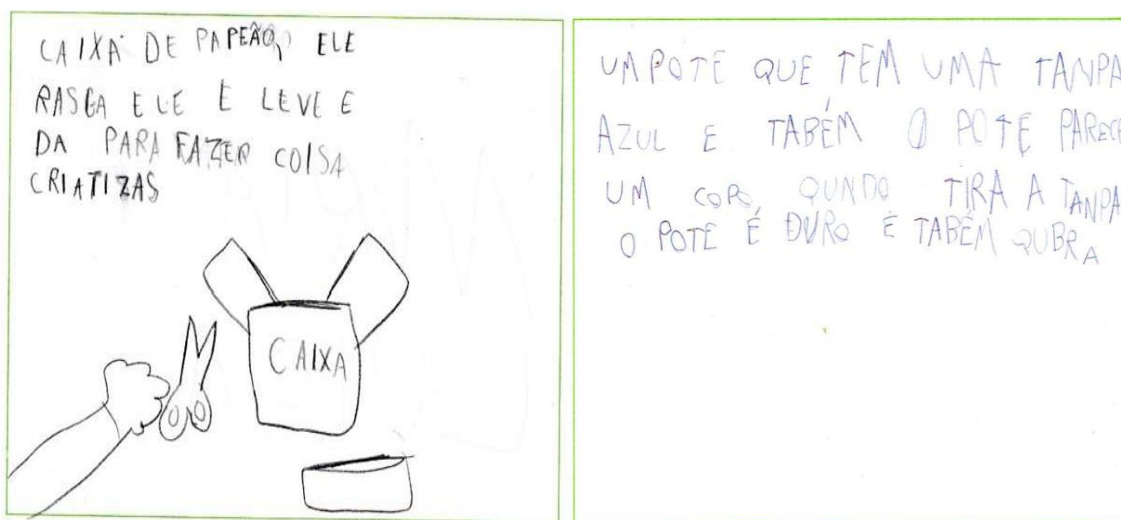 CAIXA DE PAPEÃO, ELE
RASGA ELE E LEVE E
DA PARA FAZER COISA
CRIATIZAS
CAIXA
UM POTE QUE TEM UMA TANPA
AZUL E TABÉM O POTE PARECE
UM COPO, QUNDO TIRA A TANPA
O POTE É DURO E TABÉM QUBRA